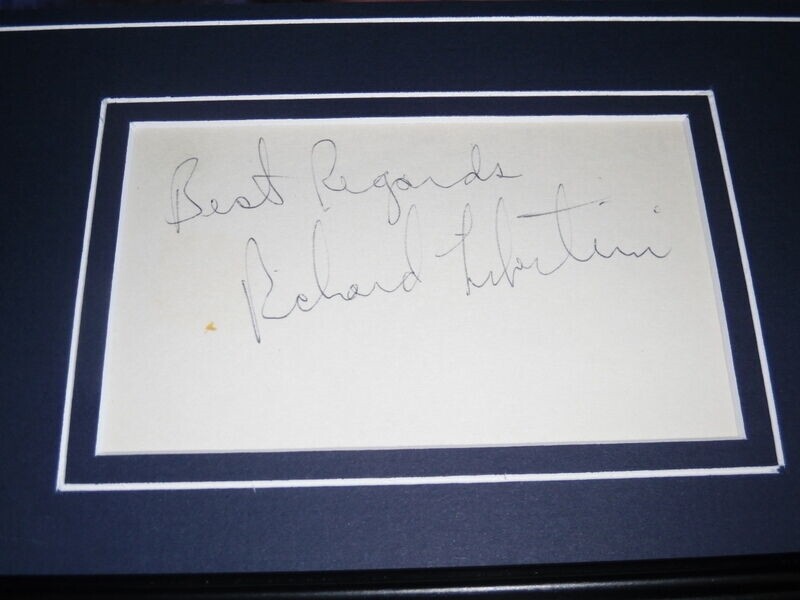 Best Regards
Richard Libertini